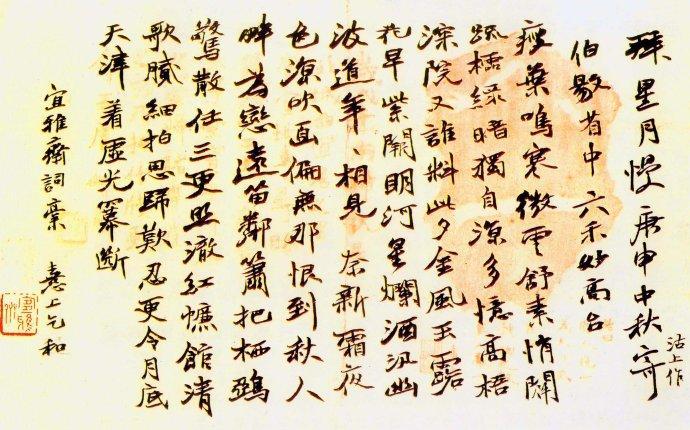 拜星月慢 庚申中秋寄
沽上作
伯 省中 六禾妙高台
瘞葉鳴寒微雲舒素悄閉
疏櫺綠暗獨自涼多憶高梧
深院又誰料此夕金風玉露
花早紫闌明河星爛酒汎幽
波道年、相見 奈新霜夜
色涼吹直偏無那恨到秋人
畔為戀遠笛鄰簫把栖鵶
驚散任三更照澈紅 館清
歌膩細拍思歸歎忍更令月底
天津着虛光冪斷
宜雅齋詞稾 惪上乞和